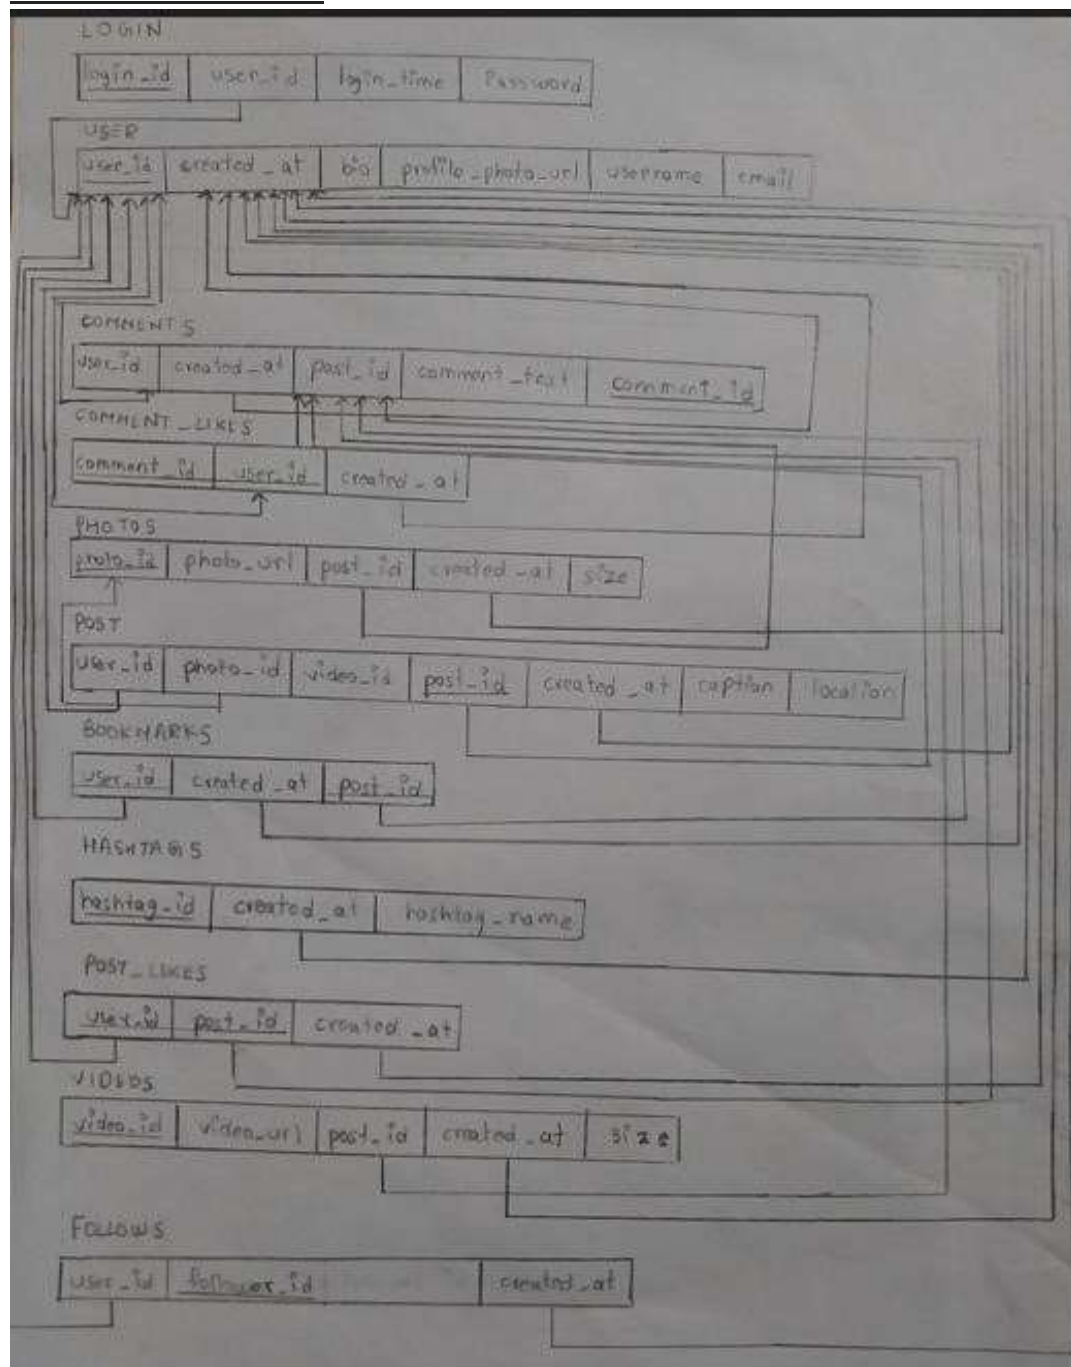 LOGIN
login_id user_id login_time Password
USER
user_id created_at bio profile_photo_url username email
COMMENTS
user_id created_at post_id comment_text comment_id
COMMENT_LIKES
comment_id user_id created_at
PHOTOS
photo_id photo_url post_id created_at size
POST
user_id photo_id video_id post_id created_at caption location
BOOKMARKS
user_id created_at post_id
HASHTAGS
hashtag_id created_at hashtag_name
POST_LIKES
user_id post_id created_at
VIDEOS
video_id video_url post_id created_at size
FOLLOWS
user_id follower_id created_at